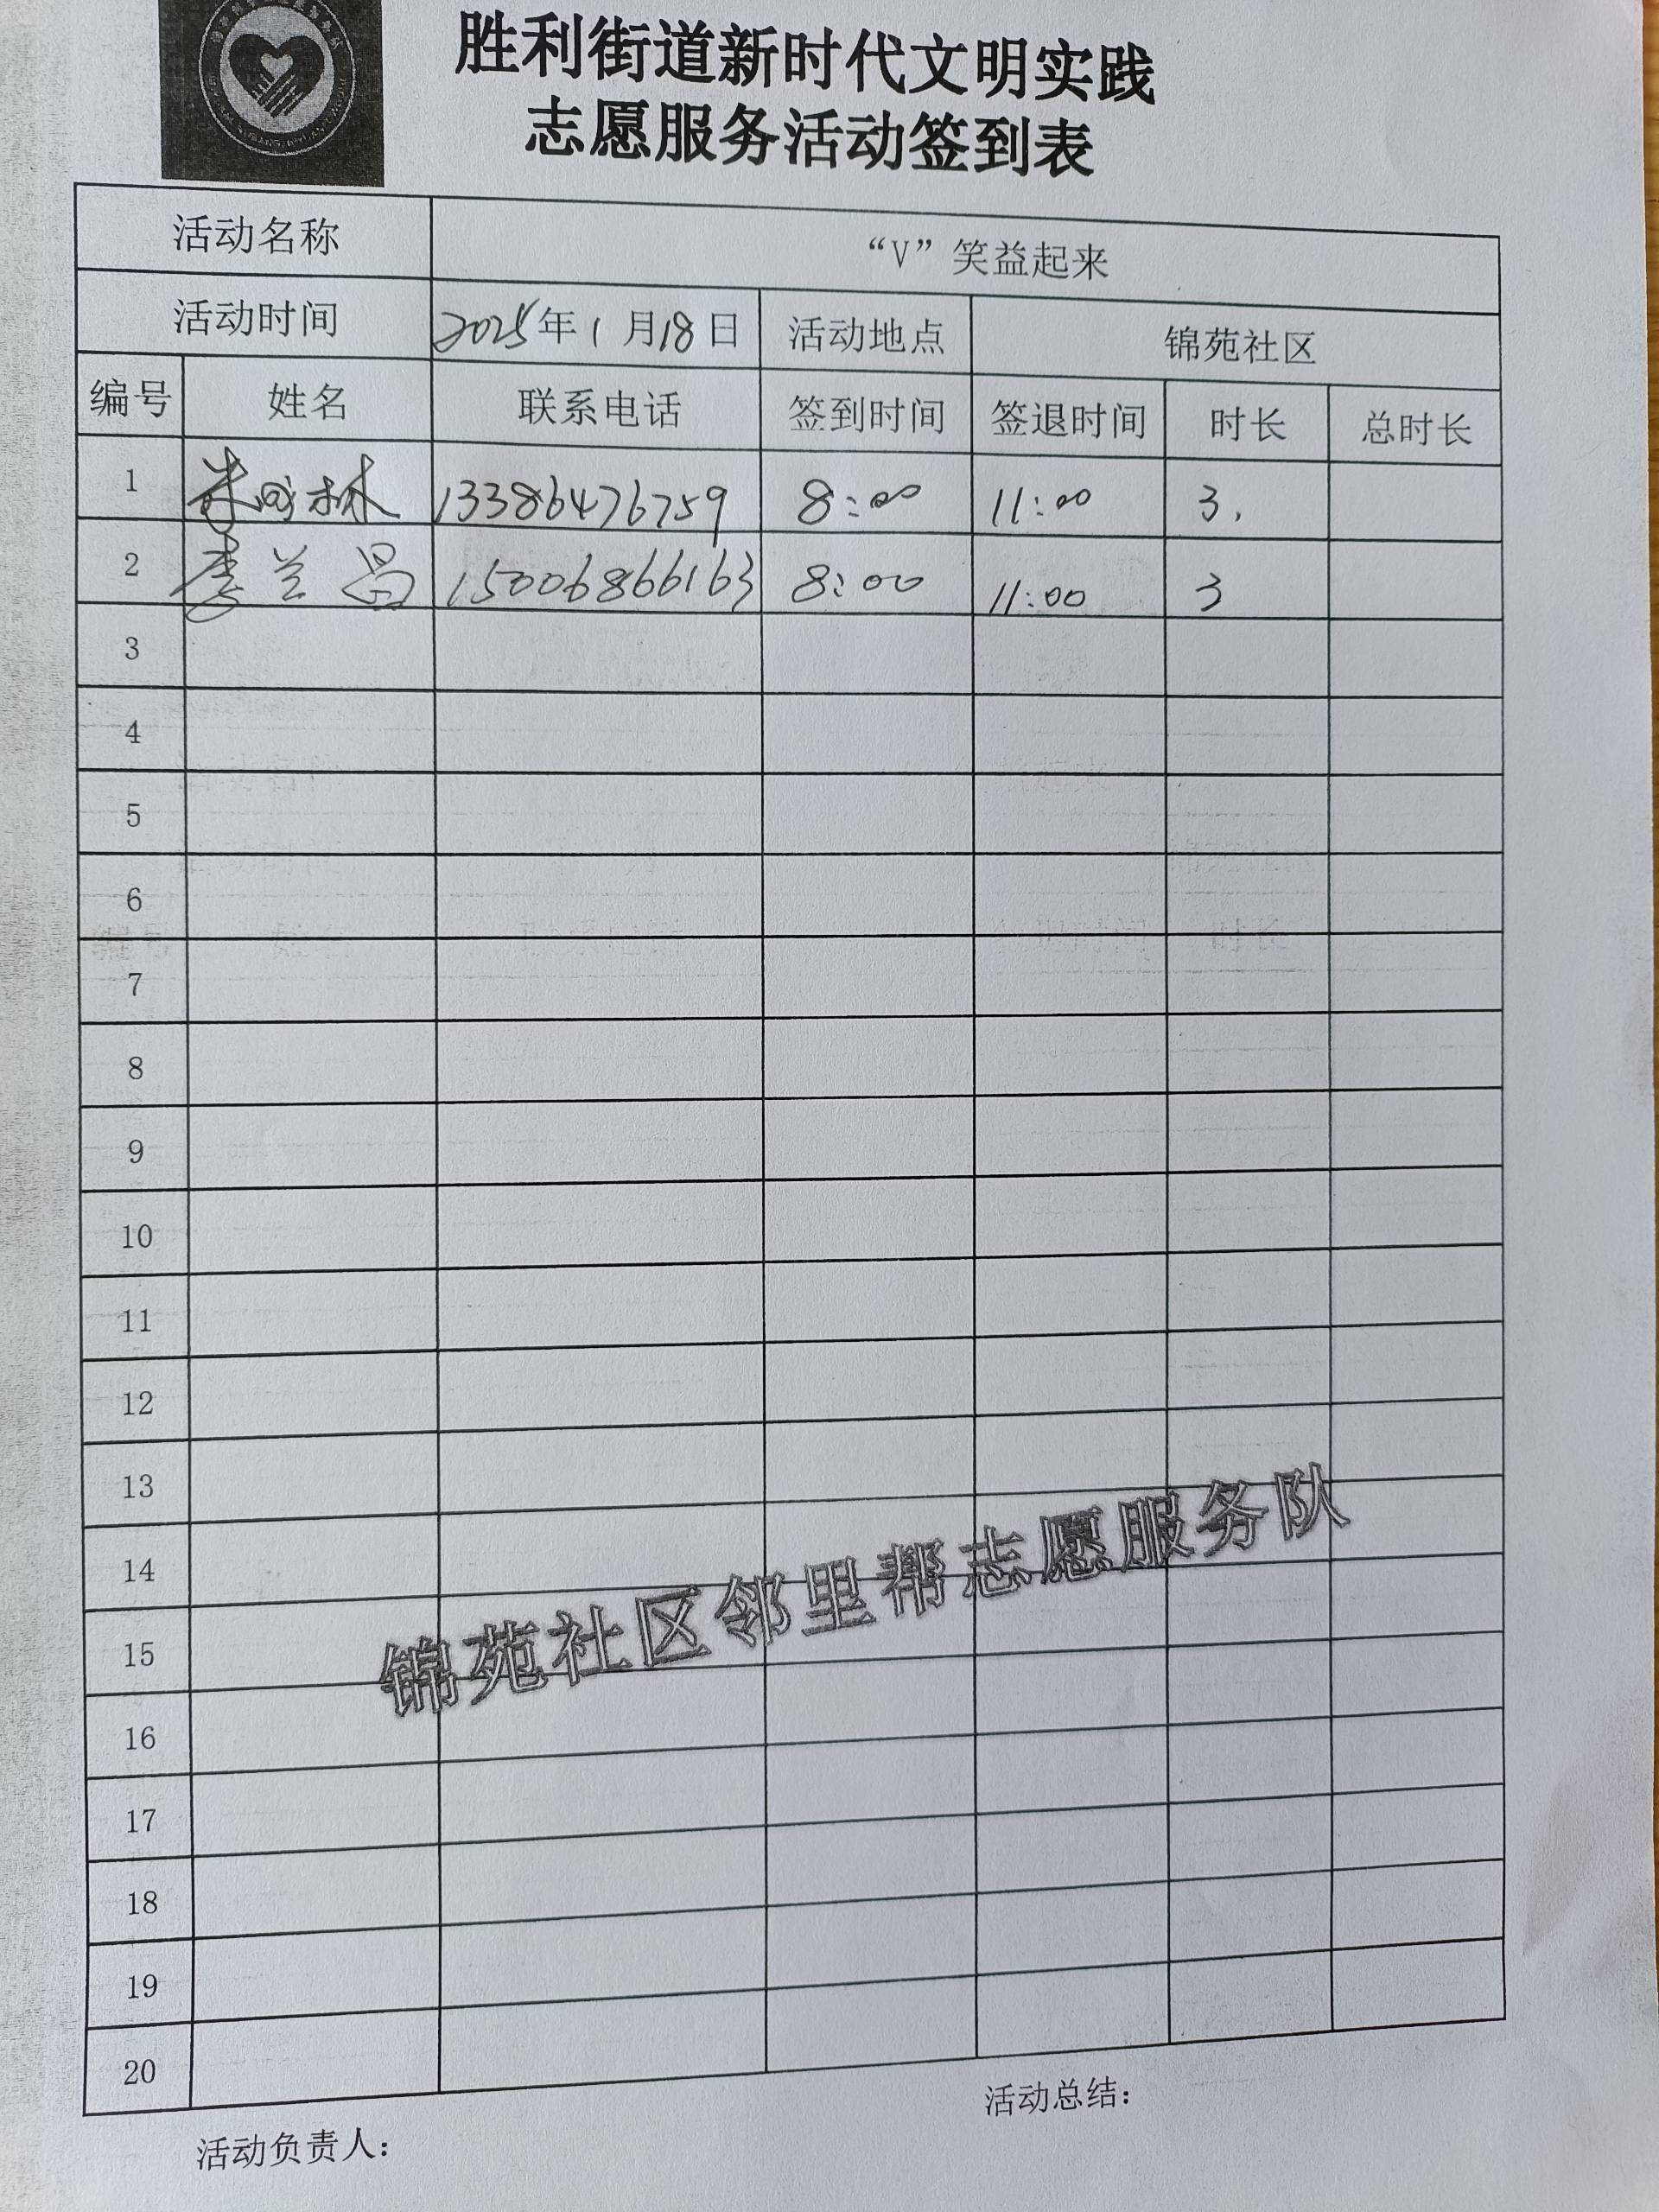 胜利街道新时代文明实践
志愿服务活动签到表
活动名称 “V”笑益起来
活动时间 2025年1月18日 活动地点 锦苑社区
编号 姓名 联系电话 签到时间 签退时间 时长 总时长
1 林 13386476759 8:00 11:00 3.
2 李兰昌 15006866163 8:00 11:00 3
3
4
5
6
7
8
9
10
11
12
13
14
15
16
17
18
19
20
锦苑社区邻里帮志愿服务队
活动负责人: 活动总结: